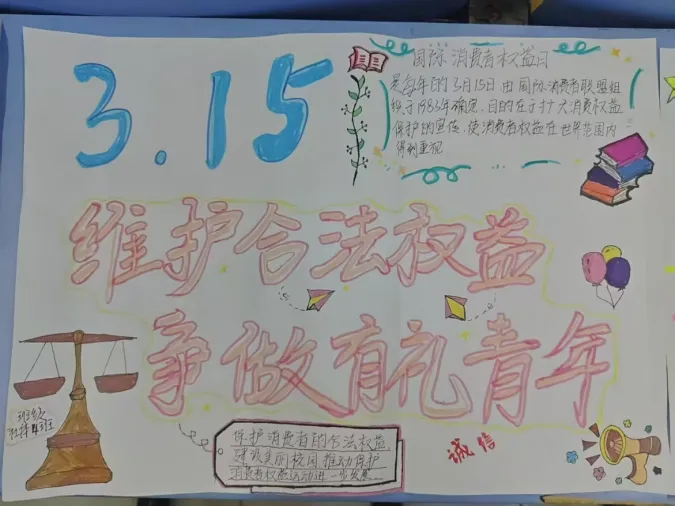 3.15
国际消费者权益日
是每年的3月15日,由国际消费者联盟组
织于1983年确定,目的在于扩大消费权益
保护的宣传,使消费者权益在世界范围内
得到重视
维护合法权益
争做有礼青年
班级
班
保护消费者的合法权益
建设美丽校园推动保护
消费者权益运动进一步发展
诚信